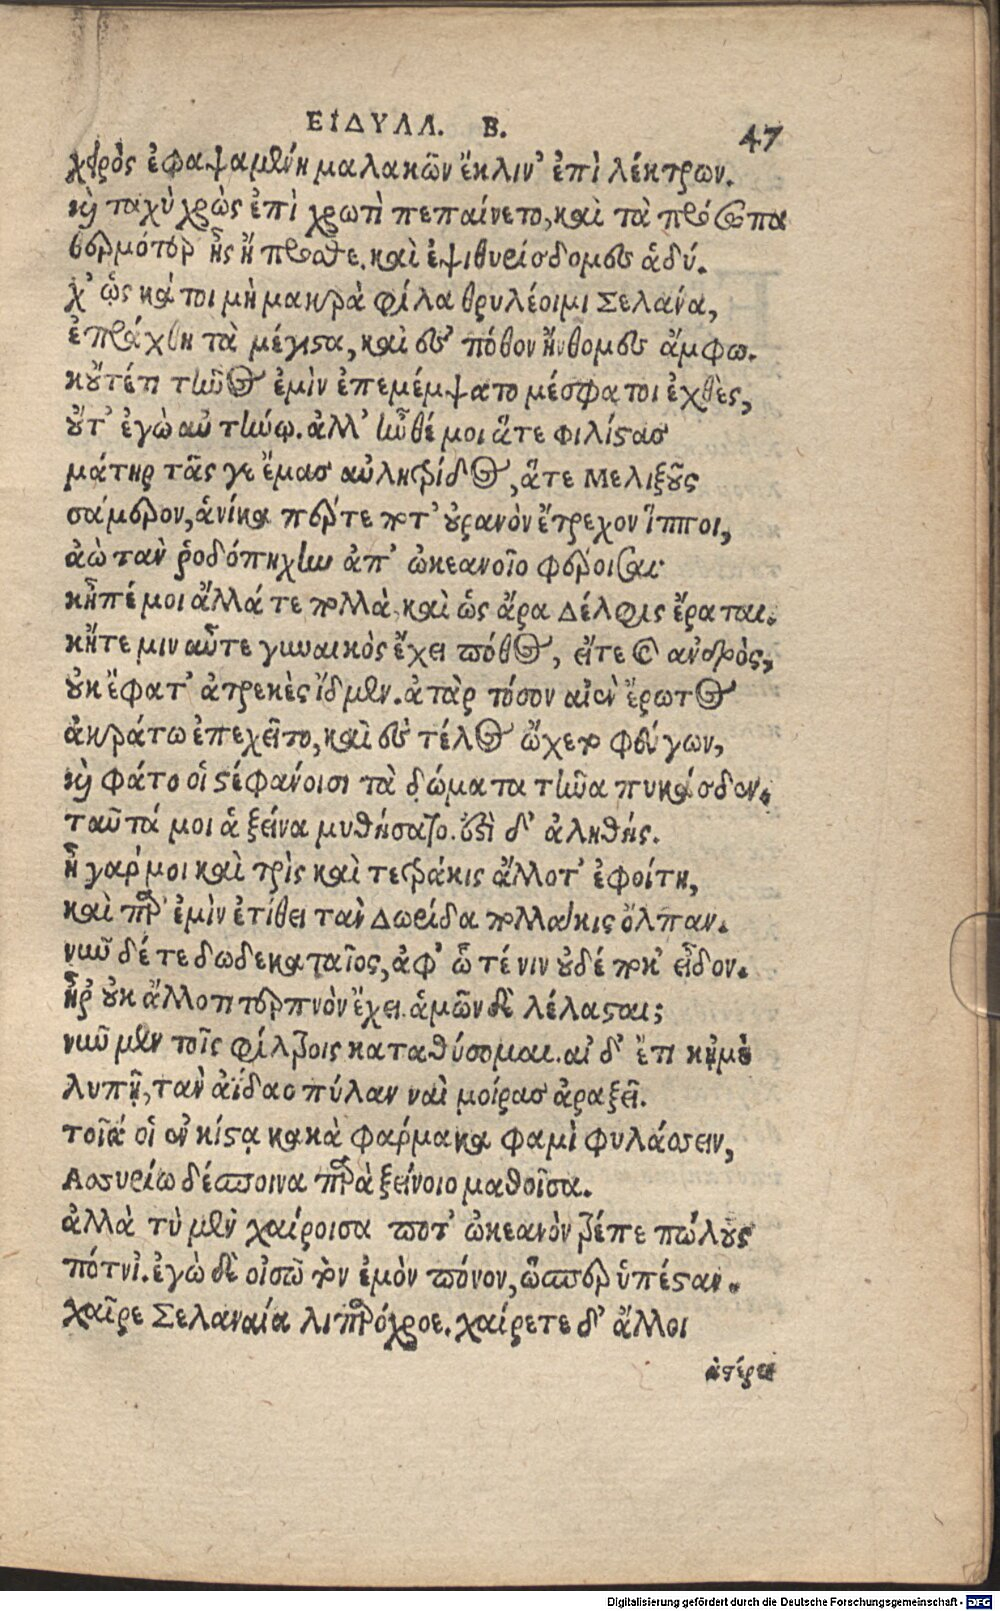 ΕΙΔΥΛΛ. Β.
47
χειρὸς ἐφαψαμένη μαλακῶν ἔκλιν' ἐπὶ λέκτρων.
καὶ ταχὺ χρὼς ἐπὶ χρωτὶ πεπαίνετο, καὶ τὰ πρόσωπα
θερμότερ' ἦς ἢ πρόσθε. καὶ ἐψιθυρίσδομες ἁδύ.
χ' ὥς κά τοι μὴ μακρὰ φίλα θρυλέοιμι Σελάνα,
ἐπράχθη τὰ μέγιστα, καὶ ἐς πόθον ἤνθομες ἄμφω.
κοὔτέ τι τῆνος ἐμὶν ἐπεμέμψατο μέσφα τοι ἐχθὲς,
οὔτ' ἐγὼ αὖ τήνῳ. ἀλλ' ἦνθέ μοι ἅτε Φιλίστας
μάτηρ τᾶς γε ἔμας αὐλητρίδος, ἅτε Μελιξοῦς
σάμερον, ἁνίκα πέρ τε ποτ' οὐρανὸν ἔτρεχον ἵπποι,
ἀὼ τὰν ῥοδόπηχυν ἀπ' ὠκεανοῖο φέροισαι·
κἦπέ μοι ἄλλά τε πολλὰ, καὶ ὡς ἄρα Δέλφις ἔραται.
κἤτε μιν αὖτε γυναικὸς ἔχει πόθος, εἴτε καὶ ἀνδρὸς,
οὐκ ἔφατ' ἀτρεκὲς ἴδμεν. ἀτὰρ τόσον αἰὲν ἔρωτος
ἀκράτω ἐπεχεῖτο, καὶ ἐς τέλος ᾤχετο φεύγων,
καὶ φάτο οἱ στεφάνοισι τὰ δώματα τῆνα πυκάσδεν.
ταῦτά μοι ἁ ξείνα μυθήσατο. ἐστὶ δ' ἀληθής.
ἦ γάρ μοι καὶ τρὶς καὶ τετράκις ἄλλοτ' ἐφοίτη,
καὶ παρ' ἐμὶν ἐτίθει τὰν Δωρίδα πολλάκις ὄλπαν.
νῦν δέ τε δωδεκαταῖος, ἀφ' ὧ τέ νιν οὐδέ ποκ' εἶδον.
ἦρ' οὐκ ἄλλο τι τερπνὸν ἔχει. ἁμῶν δὲ λέλασται;
νῦν μὲν τοῖς φίλτροις καταθύσομαι. αἰ δ' ἔτι κἠμὲ
λυπῇ, τὰν ἀΐδαο πύλαν ναὶ μοίρας ἀραξεῖ.
τοῖά οἱ ἐν κίστᾳ κακὰ φάρμακα φαμὶ φυλάσσειν,
Ἀσσυρίω δέσποινα παρὰ ξείνοιο μαθοῖσα.
ἀλλὰ τὺ μὲν χαίροισα ποτ' ὠκεανὸν τρέπε πώλους
πότνι'. ἐγὼ δὲ οἰσῶ τὸν ἐμὸν πόνον, ὥσπερ ὑπέσταν.
χαῖρε Σελαναία λιπαρόχροε. χαίρετε δ' ἄλλοι
ἀστέρες
Digitalisierung gefördert durch die Deutsche Forschungsgemeinschaft - DFG